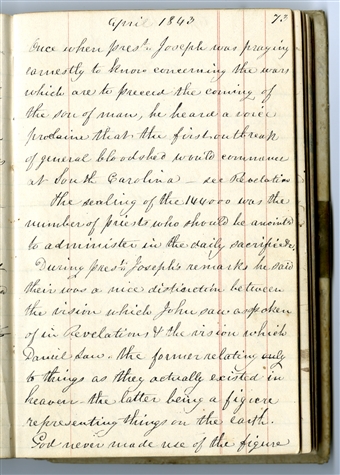 April 1843 73
Once when Prest. Joseph was praying
earnestly to know concerning the wars
which are to preceed the coming of
the son of man, he heard a voice
proclaim that the first outbreak
of general bloodshed would commence
at South Carolina — see Revelation
The sealing of the 144000 was the
number of priests who should be anointed
to administer in the daily sacrifice &c.
During Prest. Joseph's remarks he said
their was a nice distinction between
the vision which John saw as spoken
of in Revelations & the vision which
Daniel saw. the former relating only
to things as they actually existed in
heaven - the latter being a figure
representing things on the earth.
God never made use of the figure